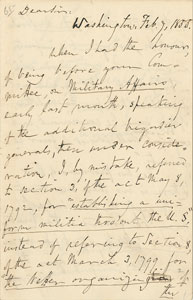 Dear Sir,
Washington, Feb 7, 1855.
When I had the honour
of being before your Com-
mittee on Military Affairs
early last month, speaking
of the additional brigadier
generals, then under conside-
ration, I, by mistake, referred
to section 3, of the act May 8,
1792, for "establishing a uni-
form militia throout the U. S.",
instead of referring to Section 8,
the act March 3, 1799, for
the better organizing
the